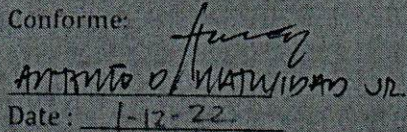 Conforme:
ANTONIO D. NATIVIDAD JR.
Date : 1-12-22